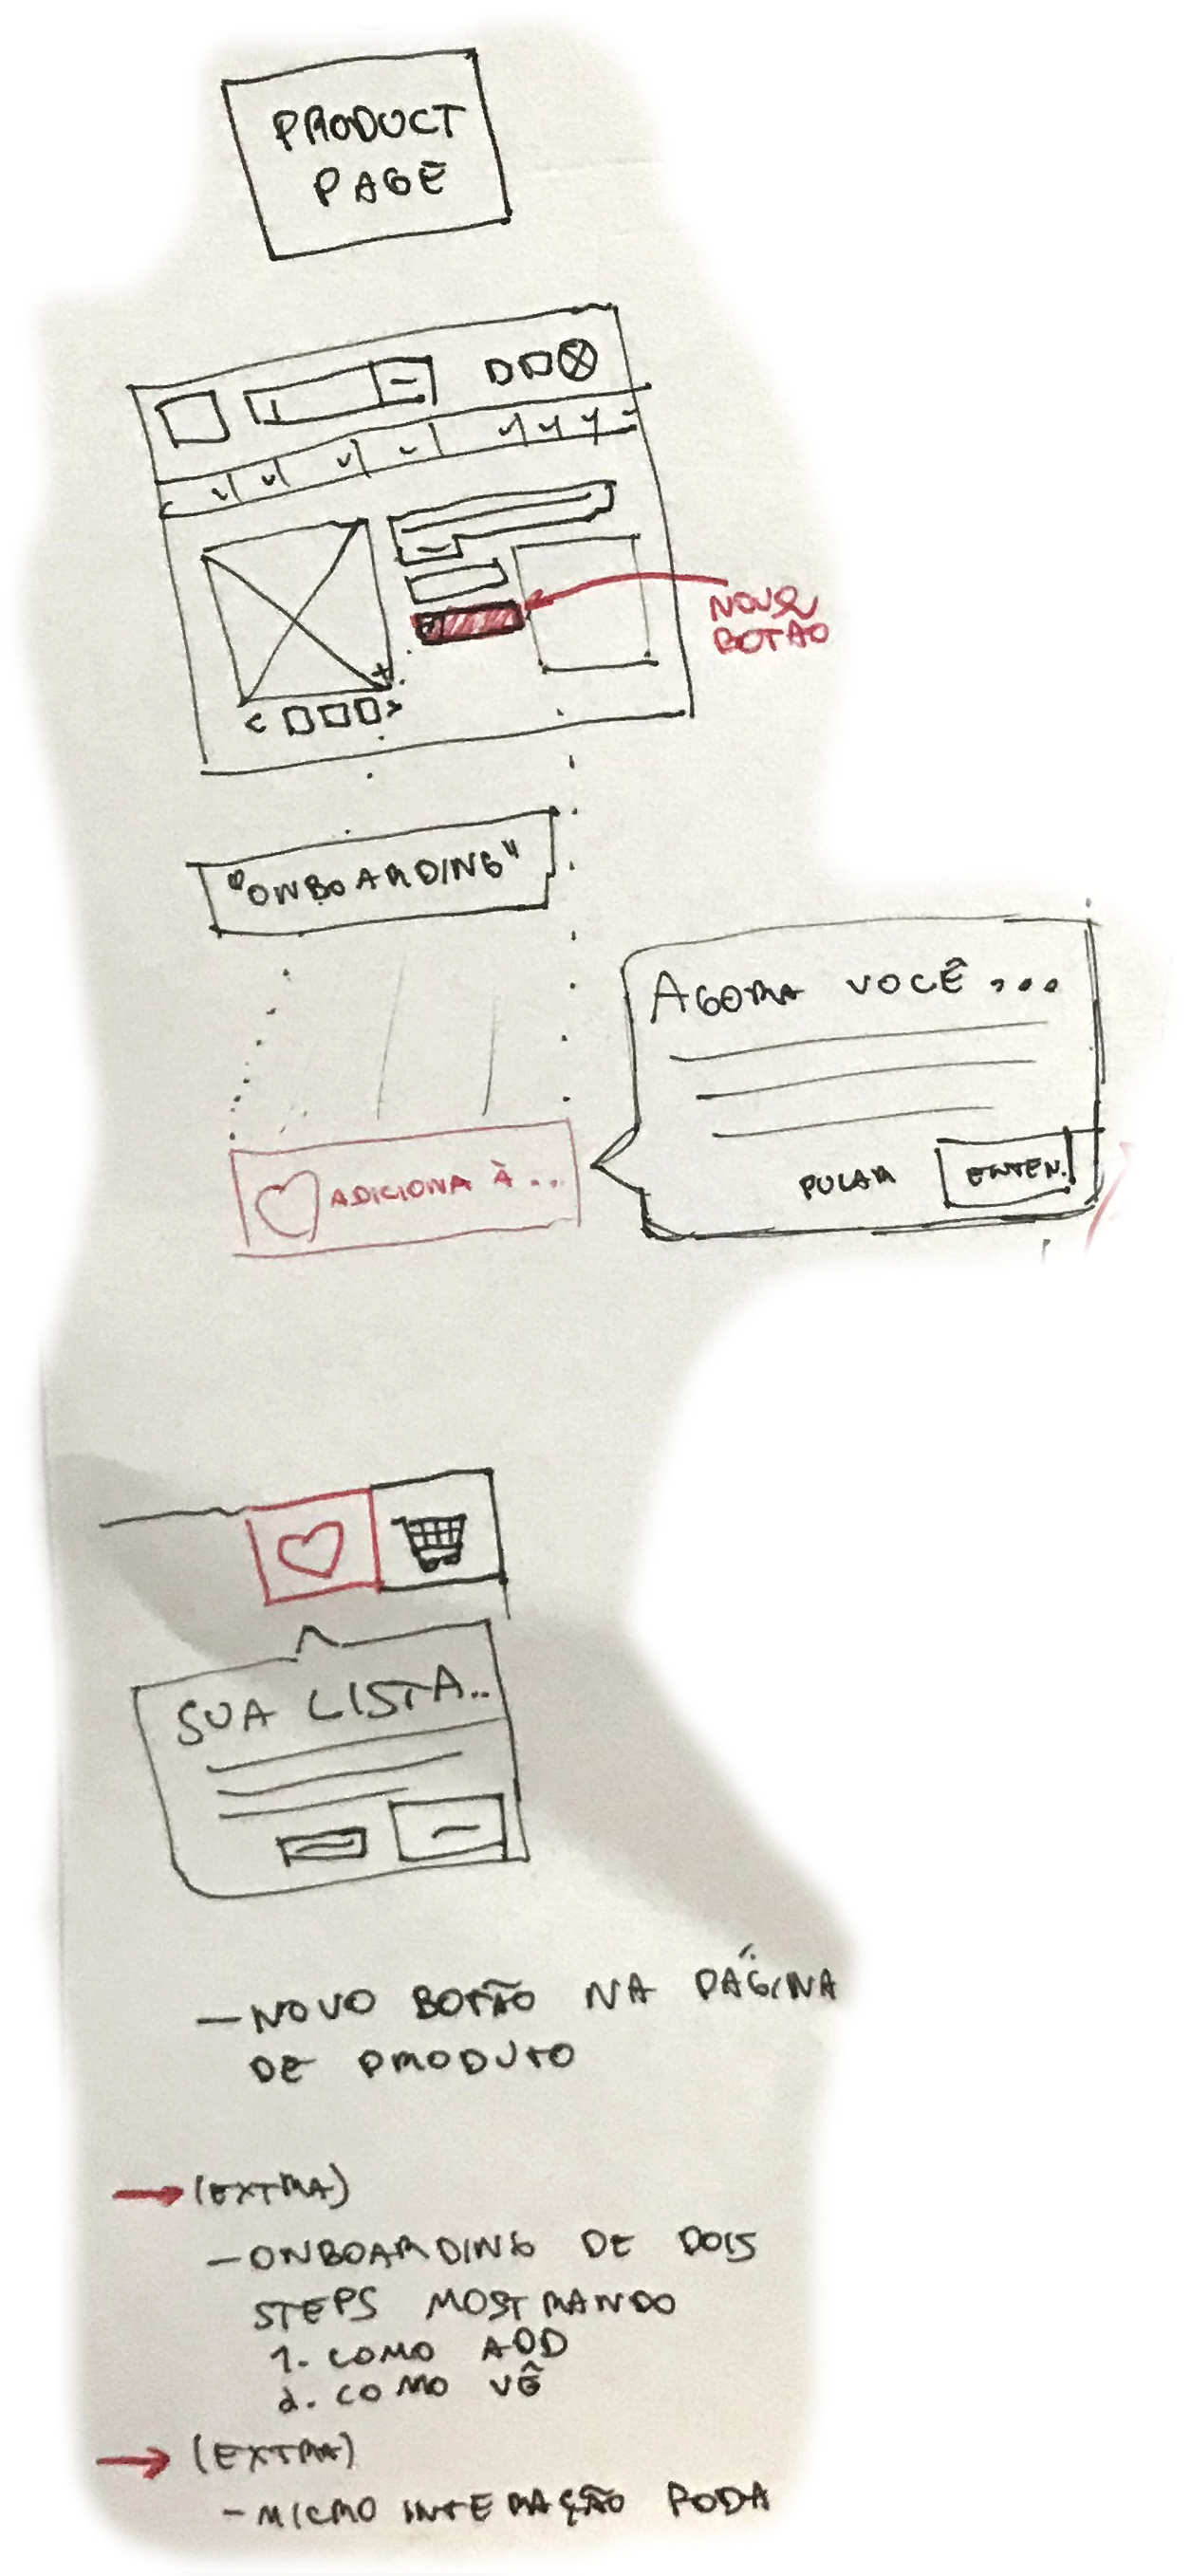 PRODUCT
PAGE
NOVO
BOTÃO
"ONBOARDING"
AGORA VOCÊ...
PULAR
ENTEN.
ADICIONA À...
SUA LISTA..
- NOVO BOTÃO NA PÁGINA
DE PRODUTO
→ (EXTRA)
- ONBOARDING DE DOIS
STEPS MOSTRANDO
1. COMO ADD
2. COMO VÊ
→ (EXTRA)
- MICRO INTERAÇÃO FODA